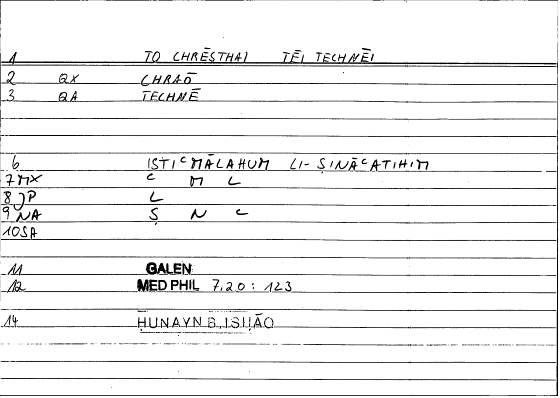 1 TO CHRĒSTHAI TĒI TECHNĒI
2 QX CHRAŌ
3 QA TECHNĒ
6 ISTIᶜMĀLAHUM LI-ṢINĀᶜATIHIM
7 MX ᶜ M L
8 JP L
9 NA Ṣ N ᶜ
10 SA
11 GALEN
12 MED PHIL 7,20 : 123
14 ḤUNAYN B. ISḤĀQ